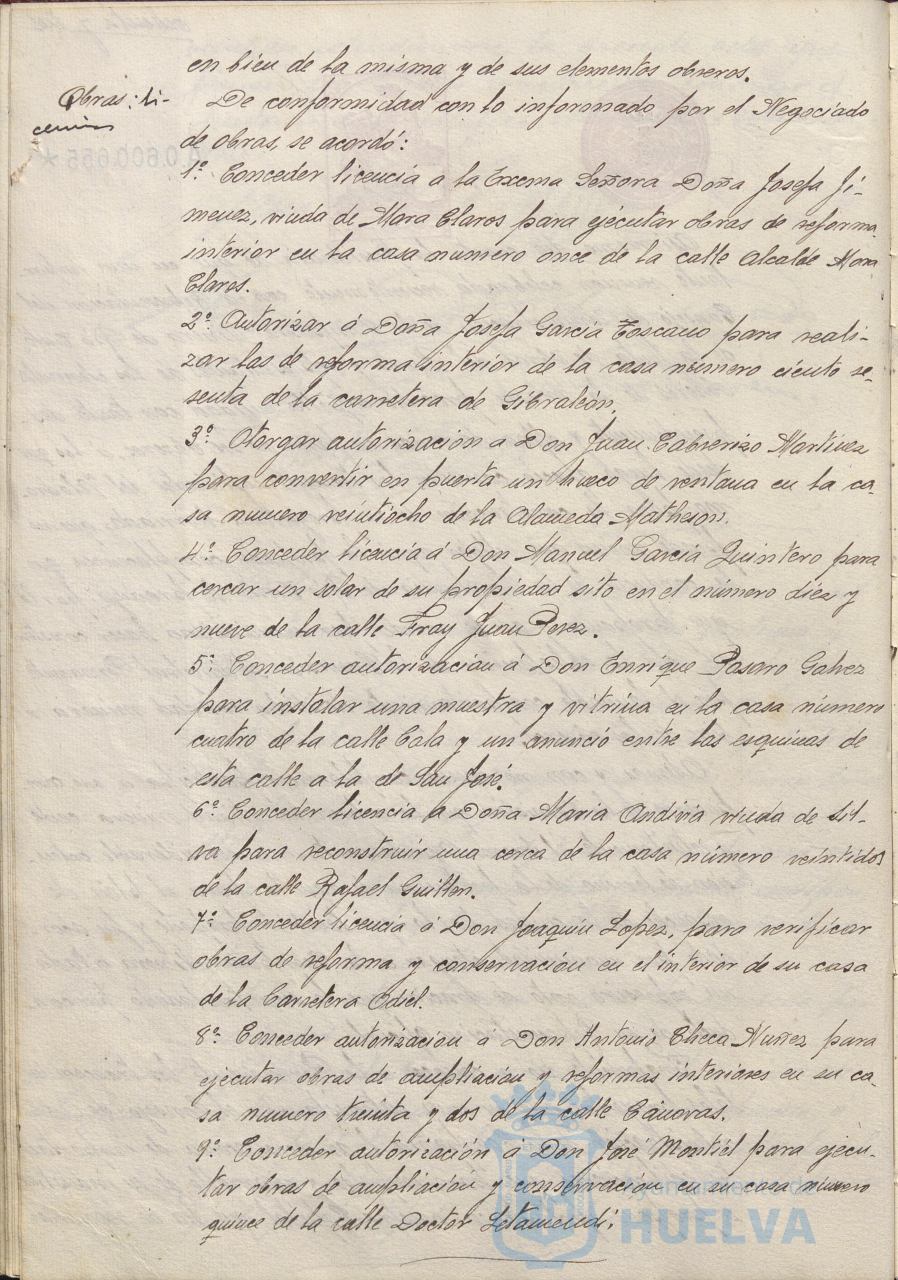 en bien de la misma y de sus elementos obreros.
Obras: li-
cencias
De conformidad con lo informado por el Negociado
de obras, se acordó:
1º Conceder licencia a la Excma Señora Doña Josefa Ji-
menez, viuda de Mora Claros para ejecutar obras de reforma
interior en la casa numero once de la calle Alcalde Mora
Claros.
2º Autorizar á Doña Josefa Garcia Toscano para reali-
zar las de reforma interior de la casa número ciento se-
senta de la carretera de Gibraleón.
3º Otorgar autorización a Don Juan Cabrerizo Martinez
para convertir en puerta un hueco de ventana en la ca-
sa numero veintiocho de la Alameda Matheson.
4º Conceder licencia á Don Manuel Garcia Quintero para
cercar un solar de su propiedad sito en el número diez y
nueve de la calle Fray Juan Perez.
5º Conceder autorización á Don Enrique Pasaro Galvez
para instalar una muestra y vitrina en la casa número
cuatro de la calle Cala y un anuncio entre las esquinas de
esta calle a la de San José.
6º Conceder licencia a Doña Maria Andivia viuda de Sil-
va para reconstruir una cerca de la casa número veintidos
de la calle Rafael Guillen.
7º Conceder licencia á Don Joaquin Lopez, para verificar
obras de reforma y conservación en el interior de su casa
de la Carretera Odiel.
8º Conceder autorización a Don Antonio Checa Nuñez para
ejecutar obras de ampliación y reformas interiores en su ca-
sa numero treinta y dos de la calle Cánovas.
9º Conceder autorización á Don José Montiel para ejecu-
tar obras de ampliación y conservación en su casa número
quince de la calle Doctor Letamendi.
Ayuntamiento de
HUELVA
0.600.655*